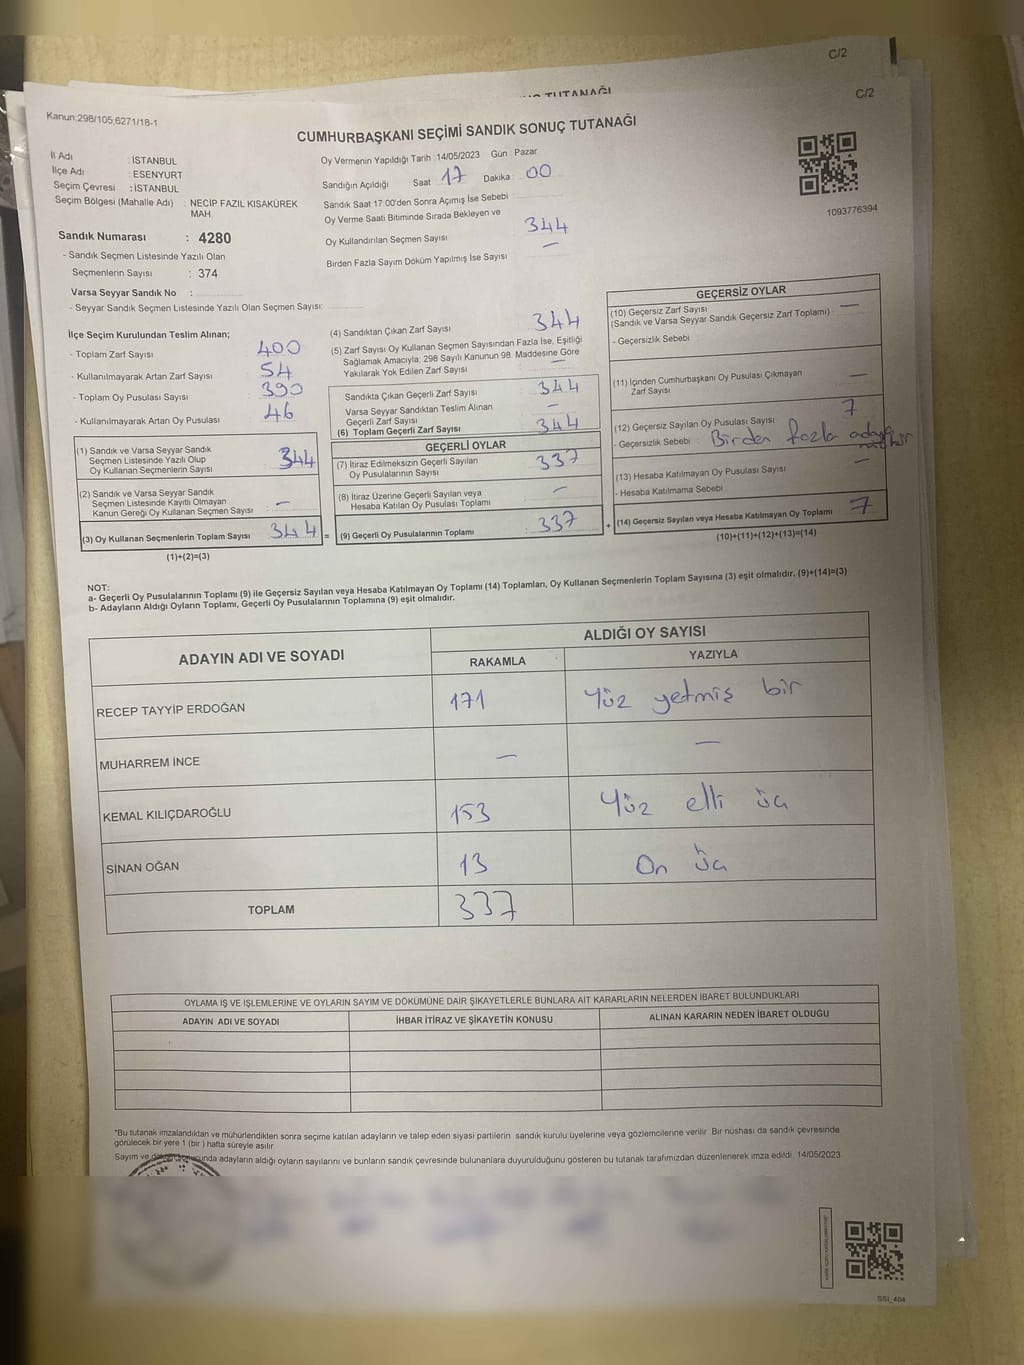 C/2
TUTANAĞI
C/2
Kanun;298/105,6271/18-1
CUMHURBAŞKANI SEÇİMİ SANDIK SONUÇ TUTANAĞI
İl Adı : İSTANBUL
İlçe Adı : ESENYURT
Seçim Çevresi : İSTANBUL
Seçim Bölgesi (Mahalle Adı) : NECİP FAZIL KISAKÜREK
MAH.
Sandık Numarası : 4280
- Sandık Seçmen Listesinde Yazılı Olan
Seçmenlerin Sayısı : 374
Varsa Seyyar Sandık No :
- Seyyar Sandık Seçmen Listesinde Yazılı Olan Seçmen Sayısı:
Oy Vermenin Yapıldığı Tarih :14/05/2023 Gün : Pazar
Sandığın Açıldığı Saat 17 Dakika 00
Sandık Saat 17:00'den Sonra Açımış İse Sebebi
Oy Verme Saati Bitiminde Sırada Bekleyen ve
Oy Kullandırılan Seçmen Sayısı 344
Birden Fazla Sayım Döküm Yapılmış İse Sayısı —
1093776394
İlçe Seçim Kurulundan Teslim Alınan;
- Toplam Zarf Sayısı 400
- Kullanılmayarak Artan Zarf Sayısı 54
- Toplam Oy Pusulası Sayısı 390
- Kullanılmayarak Artan Oy Pusulası 46
(1) Sandık ve Varsa Seyyar Sandık
Seçmen Listesinde Yazılı Olup
Oy Kullanan Seçmenlerin Sayısı 344
(2) Sandık ve Varsa Seyyar Sandık
Seçmen Listesinde Kayıtlı Olmayan
Kanun Gereği Oy Kullanan Seçmen Sayısı —
(3) Oy Kullanan Seçmenlerin Toplam Sayısı 344 =
(1)+(2)=(3)
(4) Sandıktan Çıkan Zarf Sayısı 344
(5) Zarf Sayısı Oy Kullanan Seçmen Sayısından Fazla İse, Eşitliği
Sağlamak Amacıyla, 298 Sayılı Kanunun 98. Maddesine Göre
Yakılarak Yok Edilen Zarf Sayısı —
Sandıkta Çıkan Geçerli Zarf Sayısı 344
Varsa Seyyar Sandıktan Teslim Alınan
Geçerli Zarf Sayısı —
(6) Toplam Geçerli Zarf Sayısı 344
GEÇERLİ OYLAR
(7) İtiraz Edilmeksizin Geçerli Sayılan
Oy Pusulalarının Sayısı 337
(8) İtiraz Üzerine Geçerli Sayılan veya
Hesaba Katılan Oy Pusulası Toplamı —
(9) Geçerli Oy Pusulalarının Toplamı 337 +
GEÇERSİZ OYLAR
(10) Geçersiz Zarf Sayısı —
(Sandık ve Varsa Seyyar Sandık Geçersiz Zarf Toplamı)
- Geçersizlik Sebebi
(11) İçinden Cumhurbaşkanı Oy Pusulası Çıkmayan
Zarf Sayısı —
(12) Geçersiz Sayılan Oy Pusulası Sayısı 7
- Geçersizlik Sebebi : Birden fazla adaya mühür
(13) Hesaba Katılmayan Oy Pusulası Sayısı —
- Hesaba Katılmama Sebebi
(14) Geçersiz Sayılan veya Hesaba Katılmayan Oy Toplamı 7
(10)+(11)+(12)+(13)=(14)
NOT:
a- Geçerli Oy Pusulalarının Toplamı (9) ile Geçersiz Sayılan veya Hesaba Katılmayan Oy Toplamı (14) Toplamları, Oy Kullanan Seçmenlerin Toplam Sayısına (3) eşit olmalıdır. (9)+(14)=(3)
b- Adayların Aldığı Oyların Toplamı, Geçerli Oy Pusulalarının Toplamına (9) eşit olmalıdır.
ADAYIN ADI VE SOYADI ALDIĞI OY SAYISI
RAKAMLA YAZIYLA
RECEP TAYYİP ERDOĞAN 171 Yüz yetmiş bir
MUHARREM İNCE — —
KEMAL KILIÇDAROĞLU 153 Yüz elli üç
SİNAN OĞAN 13 On üç
TOPLAM 337
OYLAMA İŞ VE İŞLEMLERİNE VE OYLARIN SAYIM VE DÖKÜMÜNE DAİR ŞİKAYETLERLE BUNLARA AİT KARARLARIN NELERDEN İBARET BULUNDUKLARI
ADAYIN ADI VE SOYADI İHBAR İTİRAZ VE ŞİKAYETİN KONUSU ALINAN KARARIN NEDEN İBARET OLDUĞU
*Bu tutanak imzalandıktan ve mühürlendikten sonra seçime katılan adayların ve talep eden siyasi partilerin sandık kurulu üyelerine veya gözlemcilerine verilir. Bir nüshası da sandık çevresinde
görülecek bir yere 1 (bir ) hafta süreyle asılır.
Sayım ve adayların aldığı oyların sayılarını ve bunların sandık çevresinde bulunanlara duyurulduğunu gösteren bu tutanak tarafımızdan düzenlenerek imza edildi. 14/05/2023
SSI_404